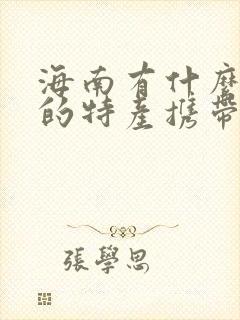 海南有什麼
的特產攜帶
張學思